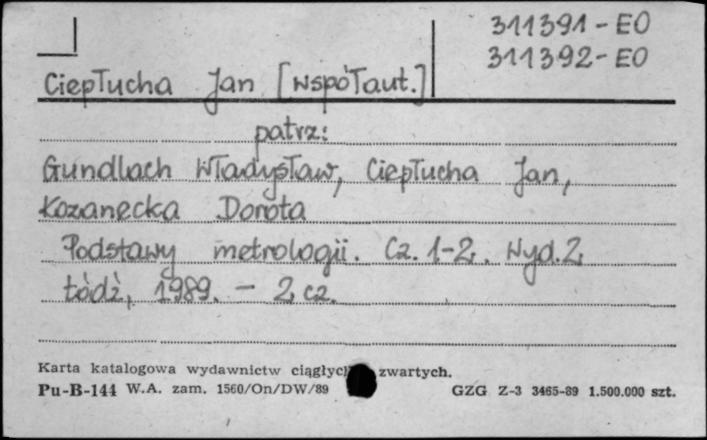 311391-EO
311392-EO
Ciepłucha Jan [współaut.]
patrz:
Gundlach Władysław, Ciepłucha Jan,
Kozanecka Dorota
Podstawy metrologii. Cz. 1-2. Wyd. 2
Łódź, 1989. - 2 cz.
Karta katalogowa wydawnictw ciągłyc zwartych.
Pu-B-144 W.A. zam. 1560/On/DW/89 GZG Z-3 3465-89 1.500.000 szt.